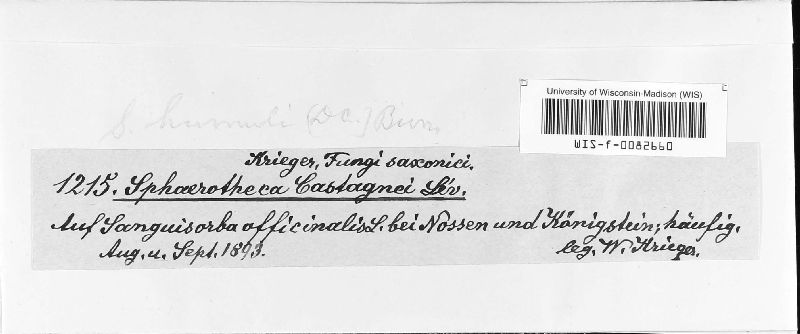 University of Wisconsin-Madison (WIS)
WIS-f-0082660
S. humuli (DC.) Burr.
Krieger, Fungi saxonici.
1215. Sphaerotheca Castagnei Lév.
Auf Sanguisorba officinalis L. bei Nossen und Königstein; häufig.
Aug. u. Sept. 1893. leg. W. Krieger.